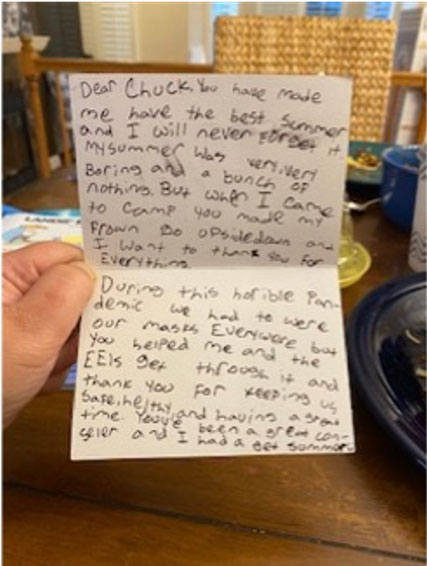 Dear Chuck, You have made
me have the best summer
and I will never FOrGet it
My summer was very, very
Boring and a bunch of
nothing. But when I came
to camp you made my
Frown go upsidedown and
I want to thank you For
Everything.
During this horible Pan-
demic we had to were
our masks Everywere but
you helped me and the
EEls get through it and
thank you For keeping us
safe, helthy, and having a great
time. You've been a great con-
seler and I had a summer